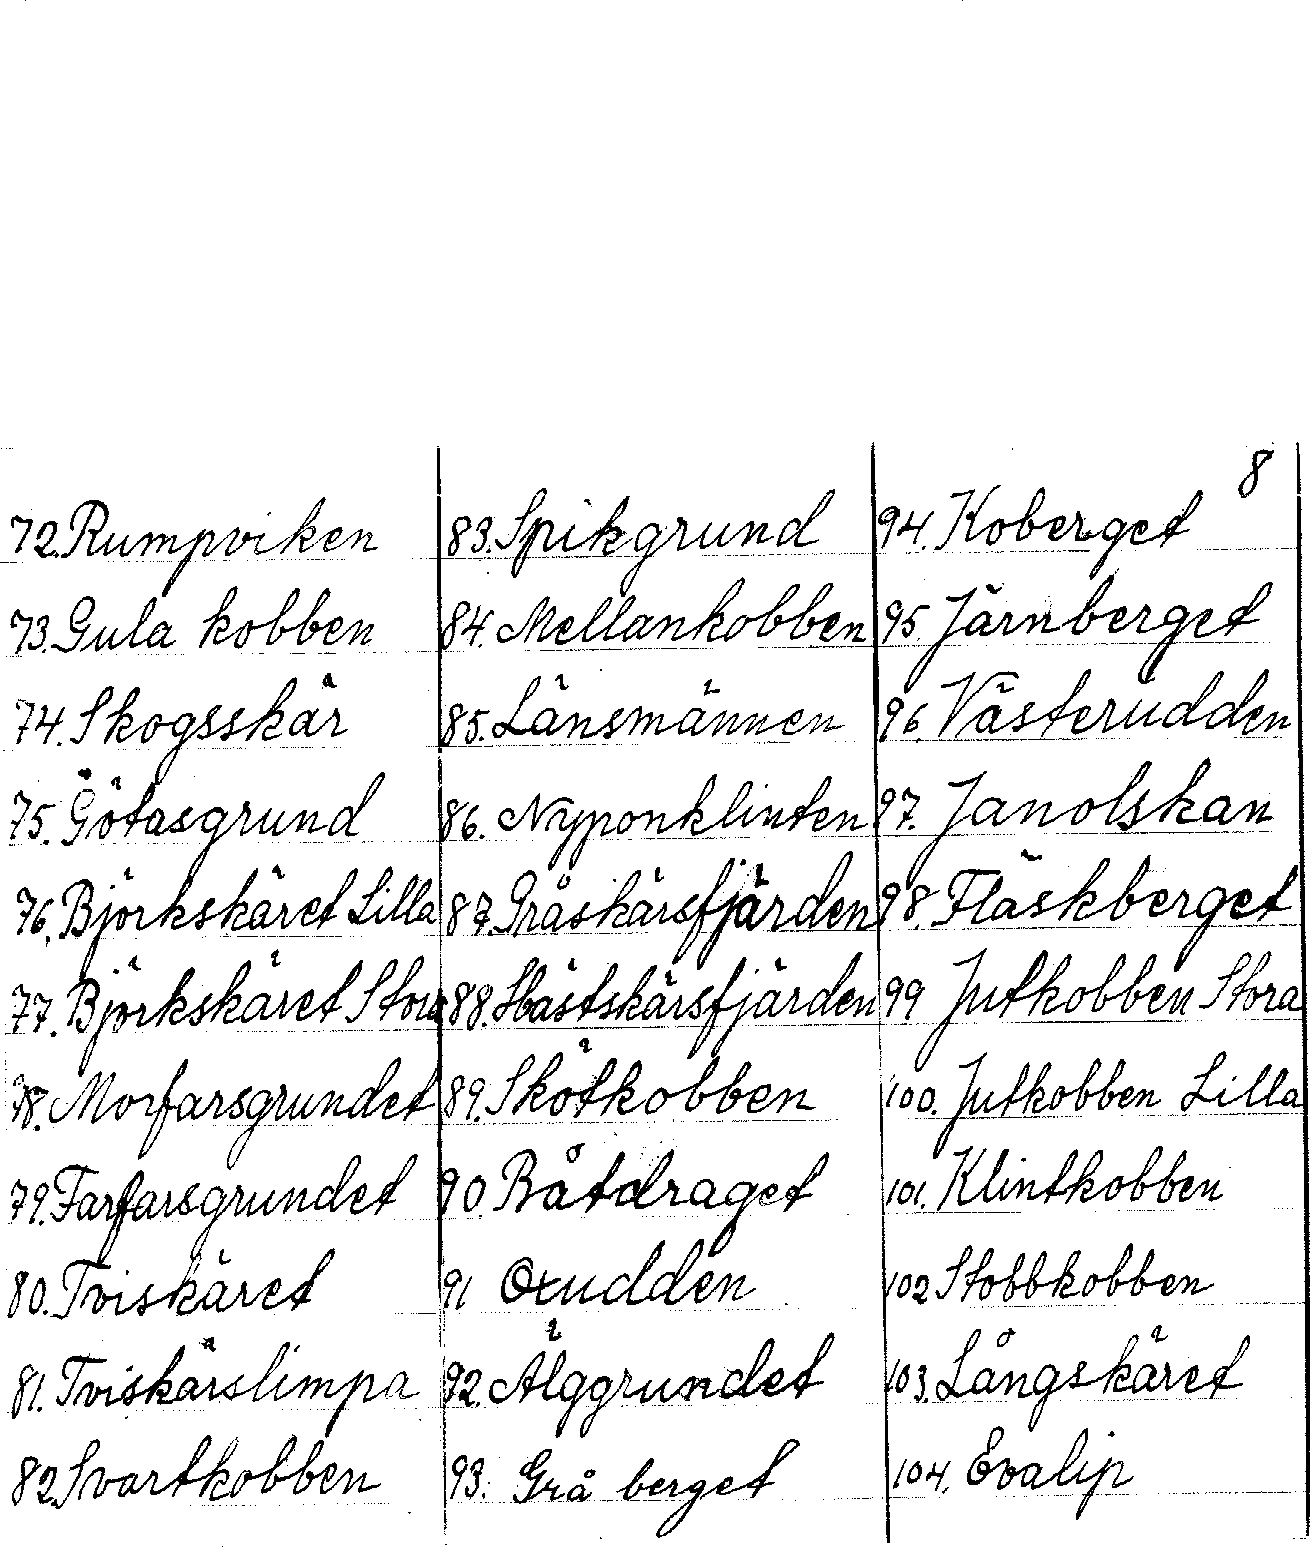 8
72. Rumpviken
73. Gula kobben
74. Skogsskär
75. Götasgrund
76. Björkskäret Lilla
77. Björkskäret Stora
78. Morfarsgrundet
79. Farfarsgrundet
80. Tviskäret
81. Tviskärslimpa
82. Svartkobben
83. Spikgrund
84. Mellankobben
85. Länsmännen
86. Nyponklinten
87. Gråskärsfjärden
88. Hästskärsfjärden
89. Skötkobben
90. Båtdraget
91 Oxudden
92. Älggrundet
93. Grå berget
94. Koberget
95. Järnberget
96. Västerudden
97. Janolskan
98. Fläskberget
99 Jutkobben Stora
100. Jutkobben Lilla
101. Klintkobben
102 Stobbkobben
103. Långskäret
104. Evalip